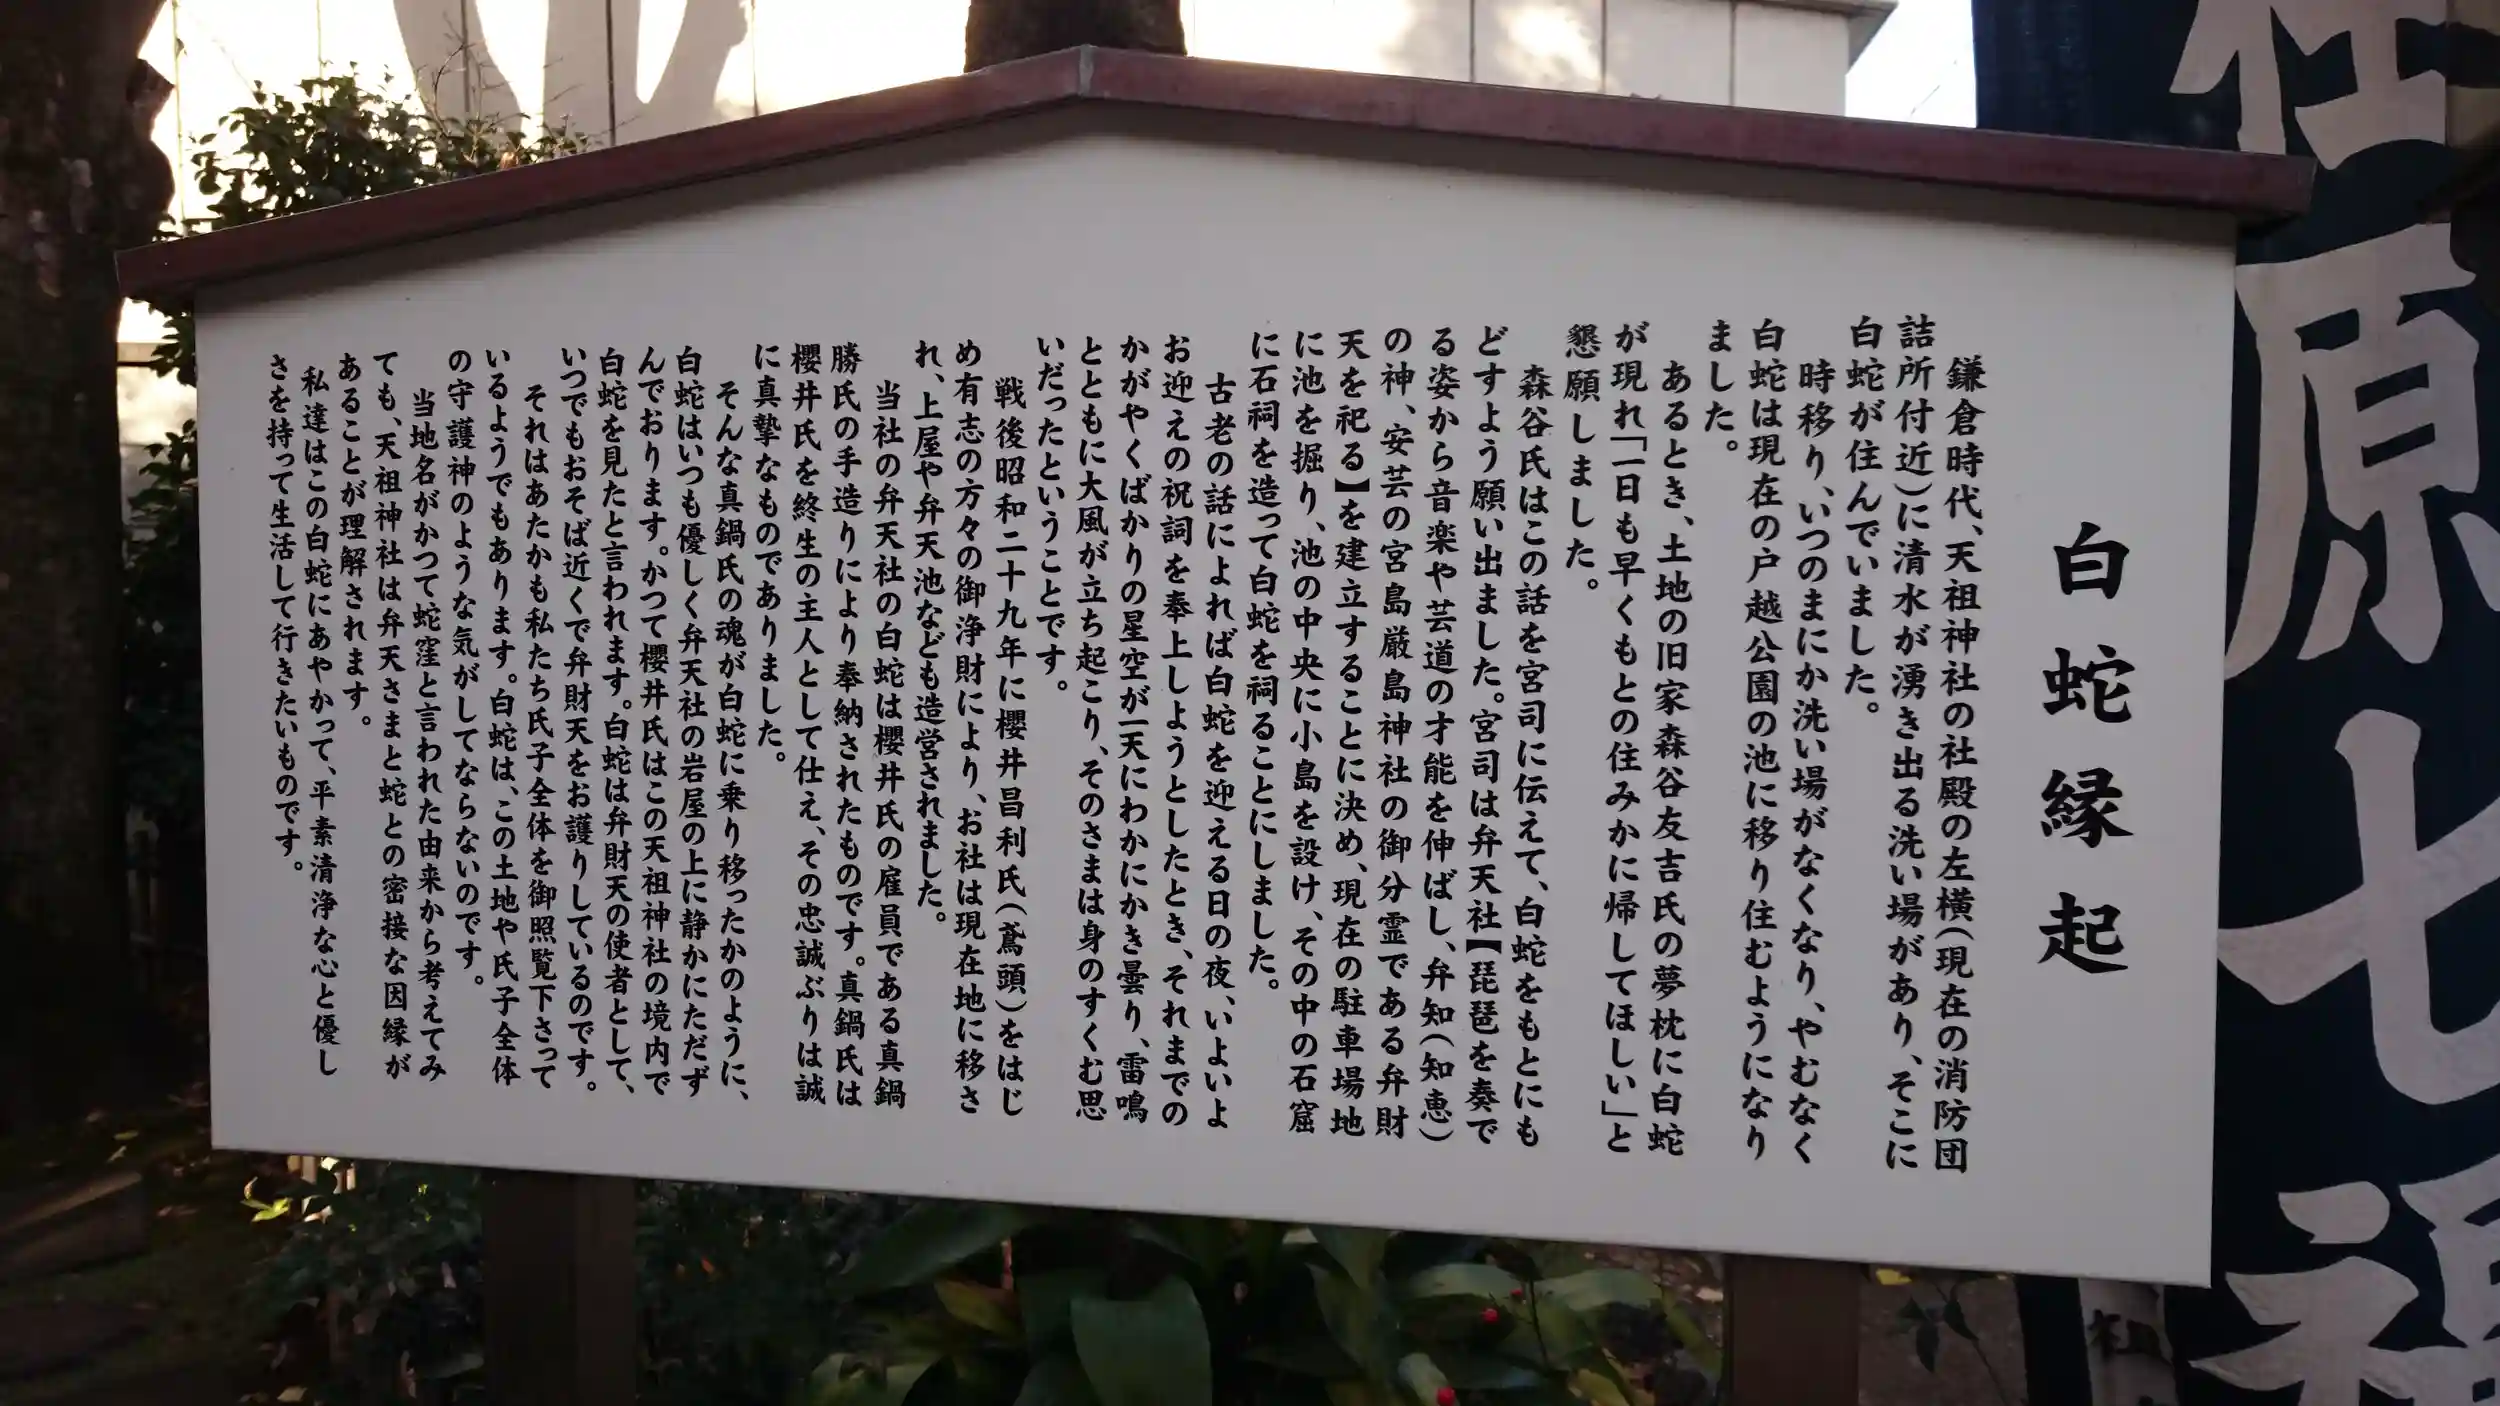 白蛇縁起
鎌倉時代、天祖神社の社殿の左横(現在の消防団
詰所付近)に清水が湧き出る洗い場があり、そこに
白蛇が住んでいました。
時移り、いつのまにか洗い場がなくなり、やむなく
白蛇は現在の戸越公園の池に移り住むようになり
ました。
あるとき、土地の旧家森谷友吉氏の夢枕に白蛇
が現れ「一日も早くもとの住みかに帰してほしい」と
懇願しました。
森谷氏はこの話を宮司に伝えて、白蛇をもとにも
どすよう願い出ました。宮司は弁天社【琵琶を奏で
る姿から音楽や芸道の才能を伸ばし、弁知(知恵)
の神、安芸の宮島厳島神社の御分霊である弁財
天を祀る】を建立することに決め、現在の駐車場地
に池を掘り、池の中央に小島を設け、その中の石窟
に石祠を造って白蛇を祠ることにしました。
古老の話によれば白蛇を迎える日の夜、いよいよ
お迎えの祝詞を奉上しようとしたとき、それまでの
かがやくばかりの星空が一天にわかにかき曇り、雷鳴
とともに大風が立ち起こり、そのさまは身のすくむ思
いだったということです。
戦後昭和二十九年に櫻井昌利氏(鳶頭)をはじ
め有志の方々の御浄財により、お社は現在地に移さ
れ、上屋や弁天池なども造営されました。
当社の弁天社の白蛇は櫻井氏の雇員である真鍋
勝氏の手造りにより奉納されたものです。真鍋氏は
櫻井氏を終生の主人として仕え、その忠誠ぶりは誠
に真摯なものでありました。
そんな真鍋氏の魂が白蛇に乗り移ったかのように、
白蛇はいつも優しく弁天社の岩屋の上に静かにただず
んでおります。かつて櫻井氏はこの天祖神社の境内で
白蛇を見たと言われます。白蛇は弁財天の使者として、
いつでもおそば近くで弁財天をお護りしているのです。
それはあたかも私たち氏子全体を御照覧下さって
いるようでもあります。白蛇は、この土地や氏子全体
の守護神のような気がしてならないのです。
当地名がかつて蛇窪と言われた由来から考えてみ
ても、天祖神社は弁天さまと蛇との密接な因縁が
あることが理解されます。
私達はこの白蛇にあやかって、平素清浄な心と優し
さを持って生活して行きたいものです。
荏原七福